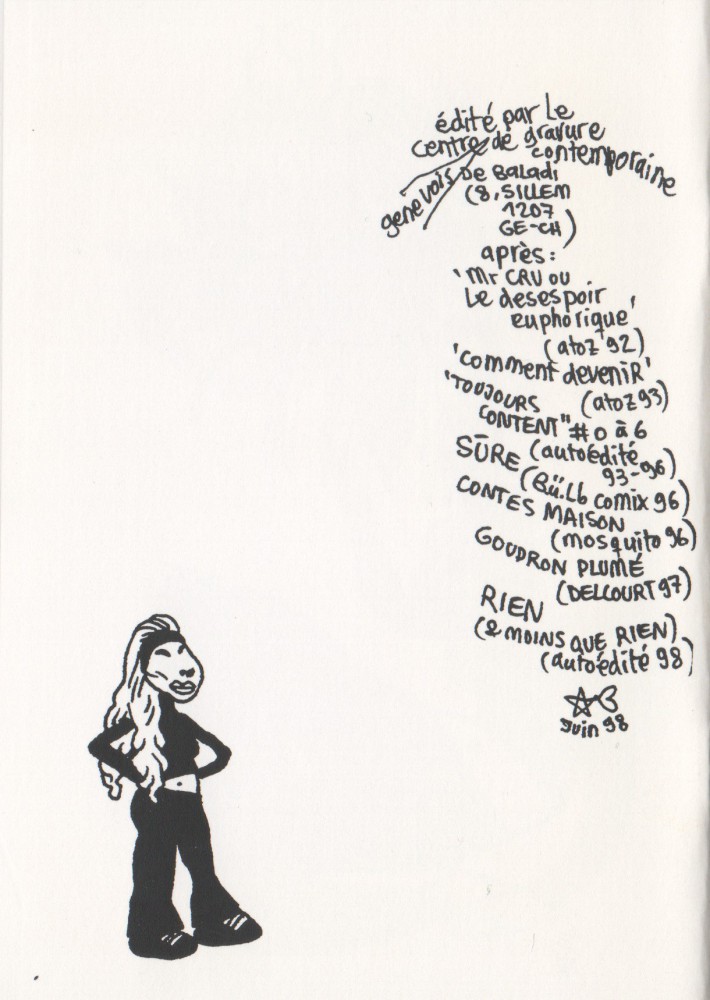 édité par Le
centre de gravure
contemporaine
genevois
De Baladi
(8, SILLEM
1207
GE-CH)
après:
'Mr CRU ou
Le desespoir
euphorique'
(atoz '92)
'comment deveniR'
(atoz 93)
'TOUJOURS
CONTENT" #0 à 6
(autoédité
93-96)
SÛRE
(Bü.Lb comix 96)
CONTES MAISON
(mosquito 96)
GOUDRON PLUMÉ
(DELCOURT 97)
RIEN
(& MOINS QUE RIEN)
(autoédité 98)
Juin 98